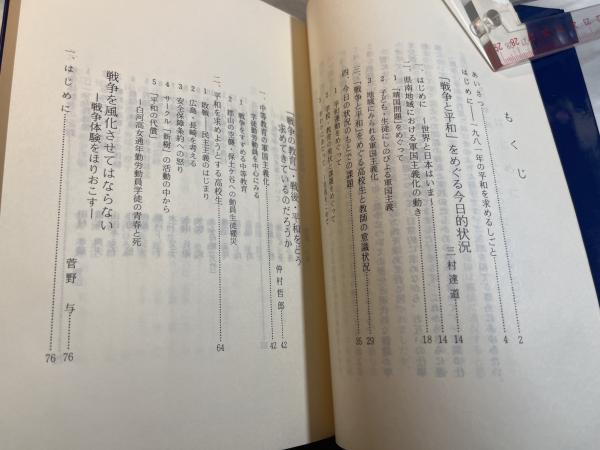 もくじ
あいさつ……2
はじめに―一九八一年の平和を求めるしごと……4
「戦争と平和」をめぐる今日的状況 三村達道……14
一、はじめに ―世界と日本はいま―……14
二、県南地域における軍国主義化の動き……18
1 「靖国問題」をめぐって
2 子ども・生徒にしのびよる軍国主義
3 地域にみられる軍国主義化
三、「戦争と平和」をめぐる高校生と教師の意識状況……29
四、今日の状況のもとでの課題……35
1 平和運動をめぐって
2 学校・教育の現状と課題をめぐって
「戦争の教育・戦後・平和をどう
求めてきているのだろうか 仲村哲郎……42
一、中等教育の軍国主義化……42
―学徒勤労動員を中心にみる
1 戦争をすすめる中等教育
2 郡山の空爆・保土ケ谷への動員生徒罹災
二、平和を求めようとする高校生……64
1 敗戦――民主主義のはじまり
2 広島・長崎を考える
3 安全保障条約への怒り
4 サークル「新樹」の活動の中から
5 「平和の代償」
―白河高女通年勤労動員学徒の青春と死
戦争を風化させてはならない
―戦争体験をほりおこす― 菅野 与……76
一、はじめに……76